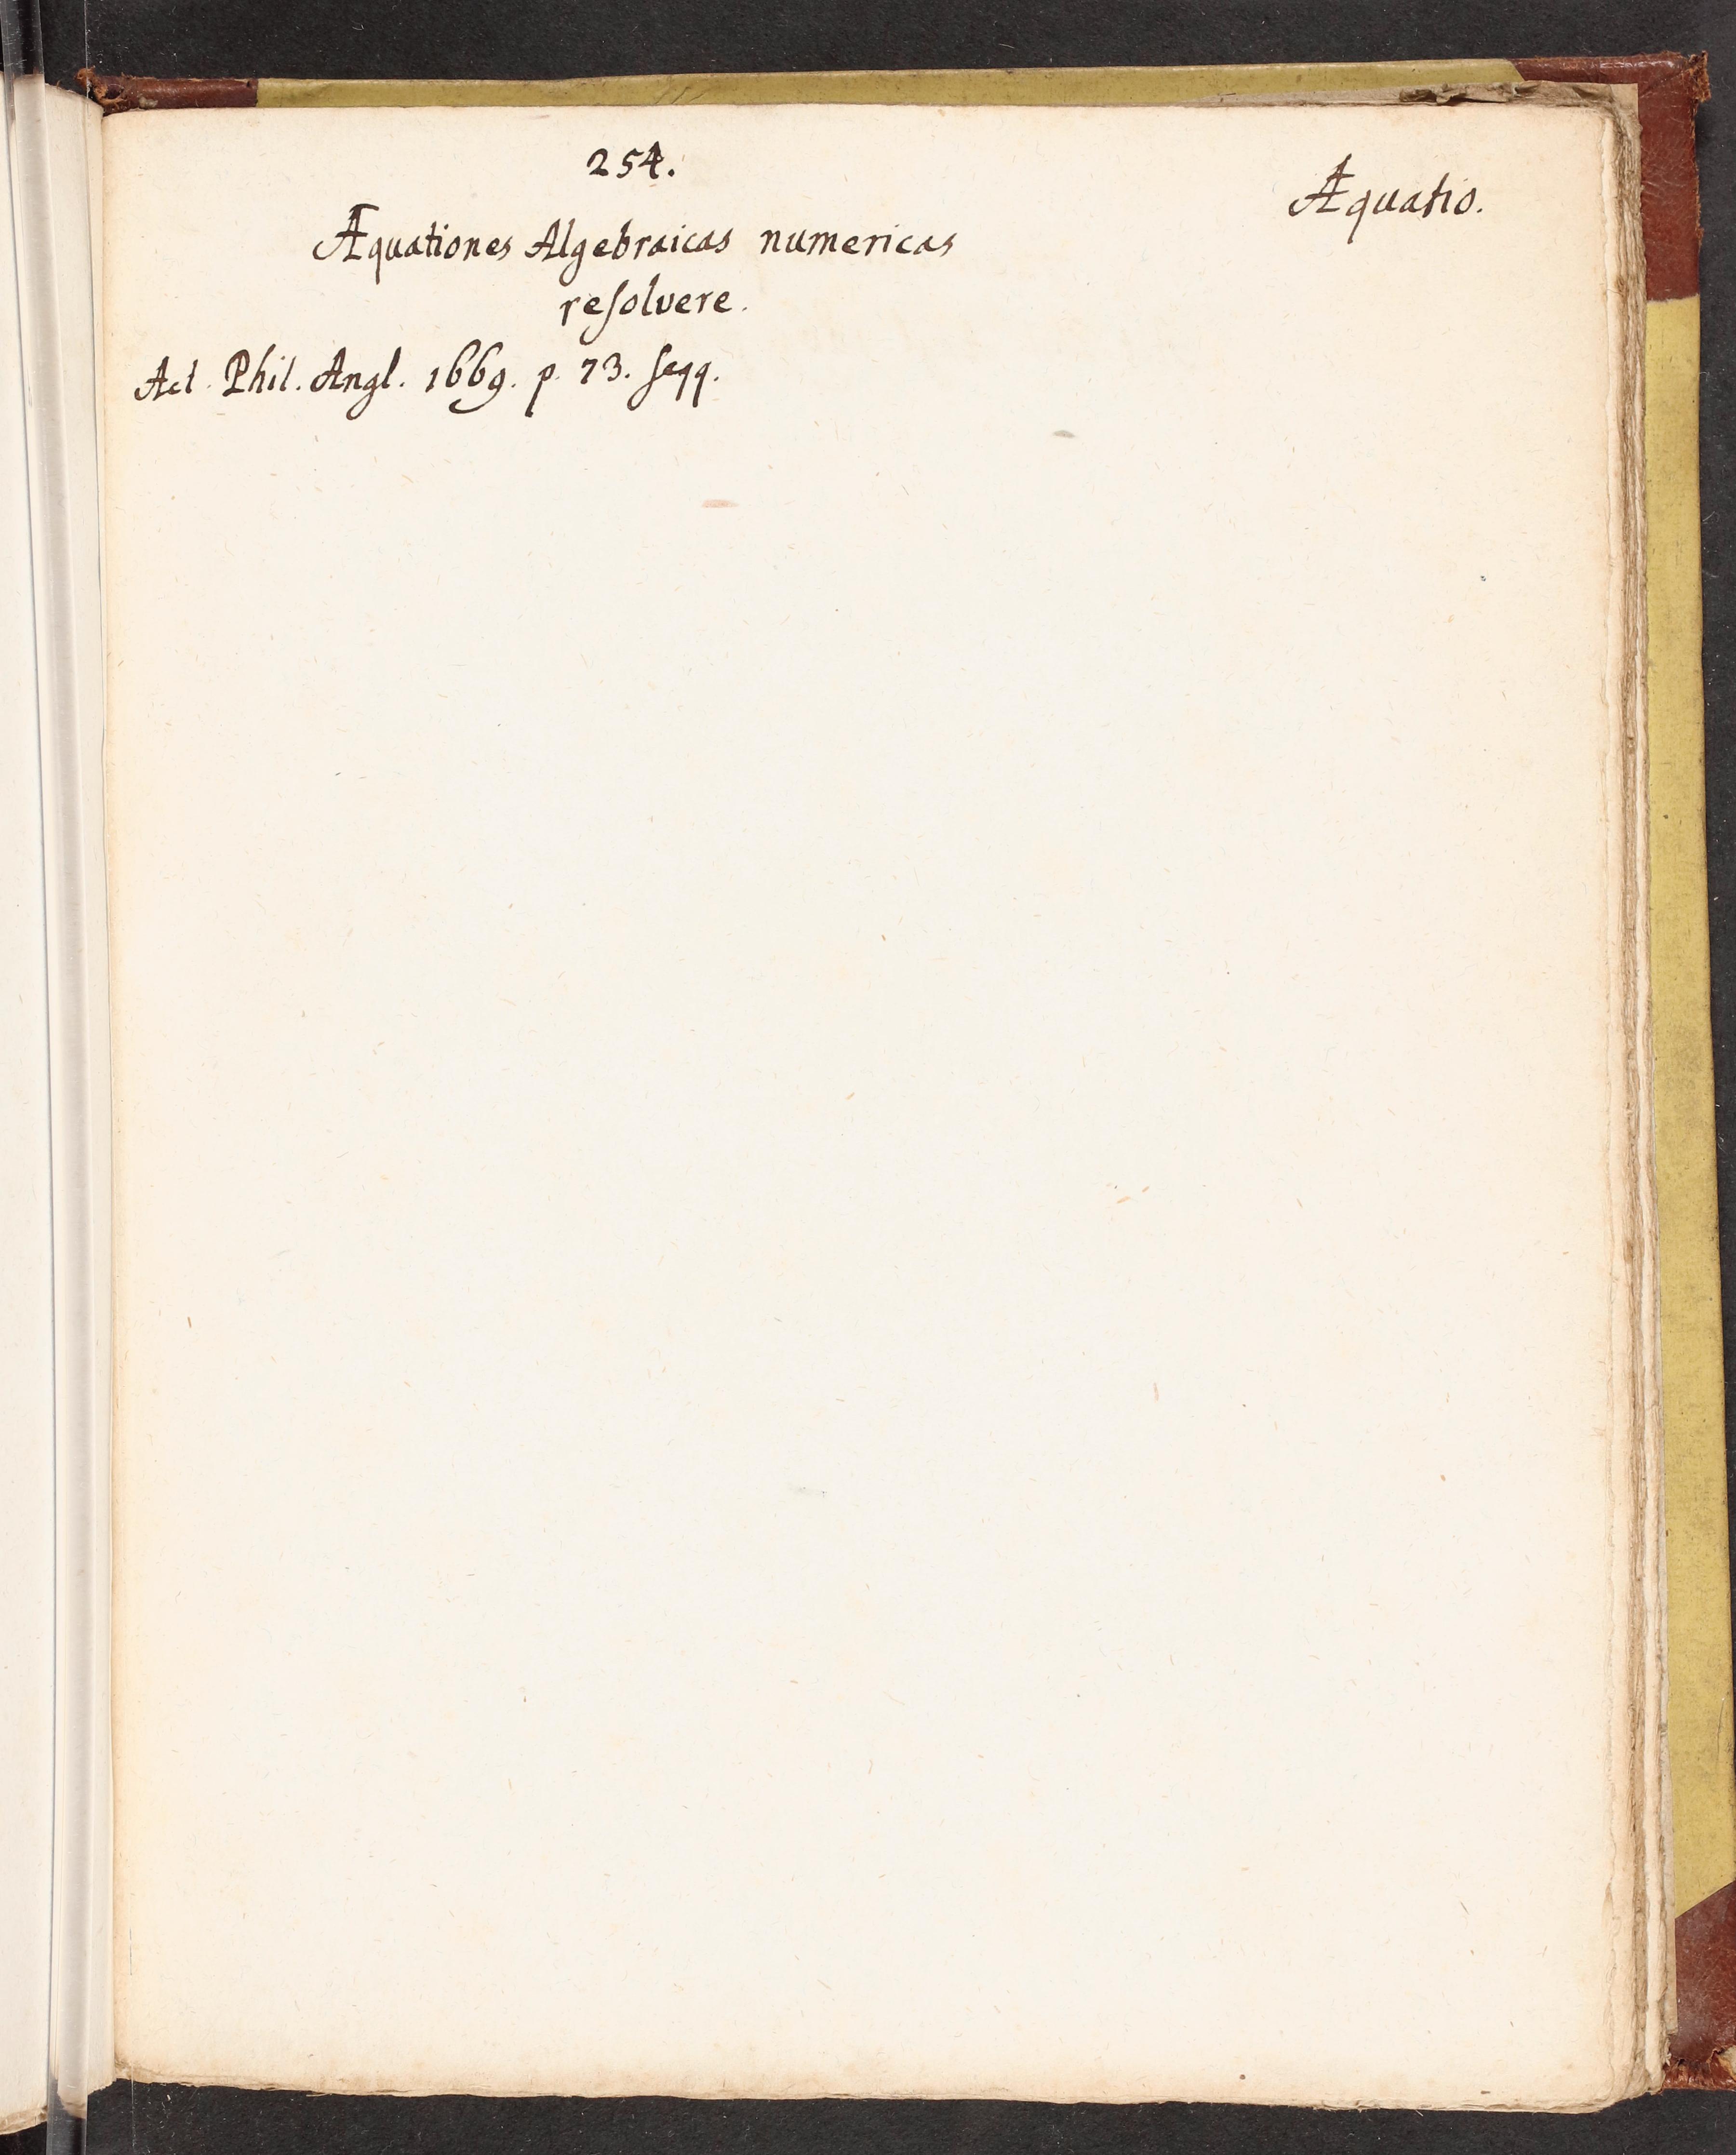 254.
Æquatio.
Æquationes Algebraicas numericas
reſolvere.
Act. Phil. Angl. 1669. p. 73. ſeqq.